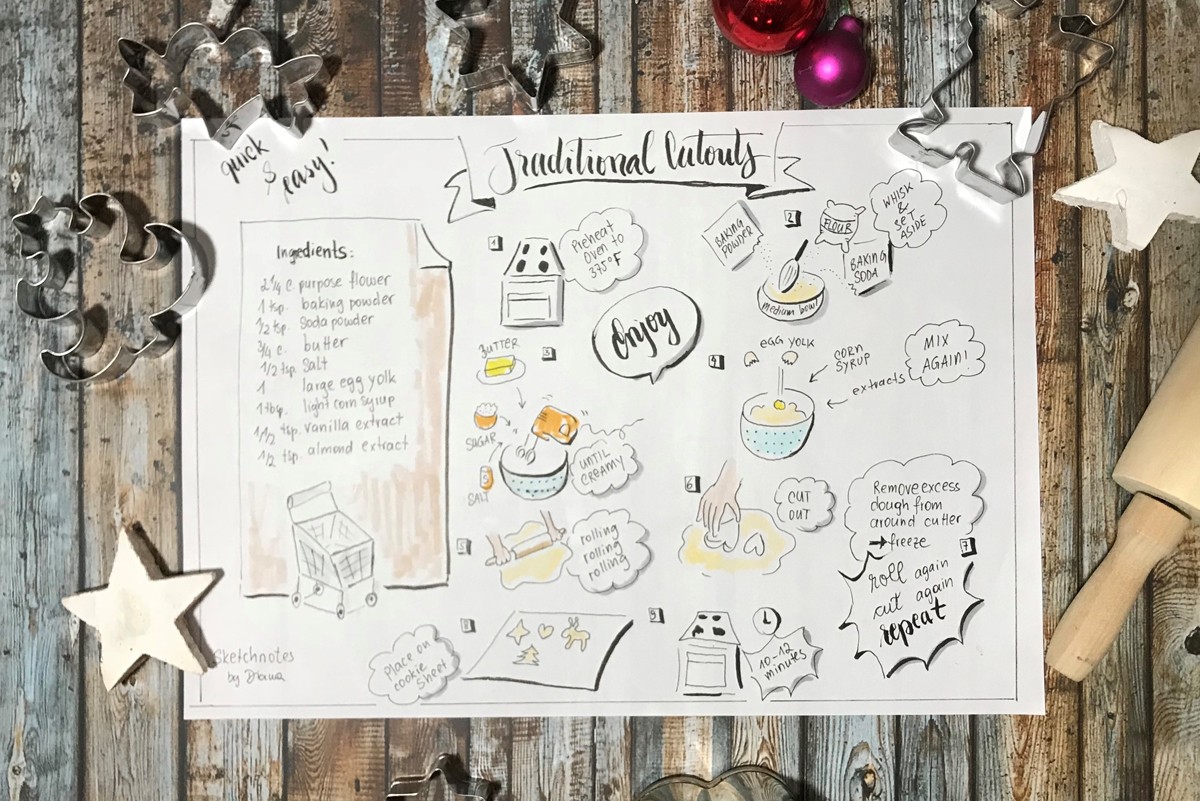 quick
& easy!
Traditional Cutouts
Ingredients:
2 1/4 c. purpose flower
1 tsp. baking powder
1/2 tsp. Soda powder
3/4 c. butter
1/2 tsp. Salt
1 large egg yolk
1 tbsp. light corn syrup
1 1/2 tsp. vanilla extract
1/2 tsp. almond extract
Sketchnotes
by Diana
1
Preheat
Oven to
375°F
2
BAKING
POWDER
FLOUR
BAKING
SODA
medium bowl
WHISK
&
SET
ASIDE
Enjoy
3
BUTTER
SUGAR
SALT
UNTIL
CREAMY
4
EGG YOLK
CORN
SYRUP
extracts
MIX
AGAIN!
5
rolling
rolling
rolling
6
CUT
OUT
Remove excess
dough from
around cutter
→ freeze
7
roll again
cut again
repeat
8
Place on
cookie
Sheet
9
10-12
minutes